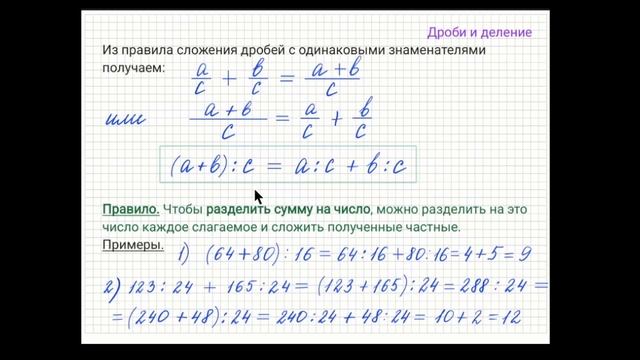 Дроби и деление
Из правила сложения дробей с одинаковыми знаменателями
получаем: a/c + b/c = a+b/c
или a+b/c = a/c + b/c
(a+b):c = a:c + b:c
Правило. Чтобы разделить сумму на число, можно разделить на это
число каждое слагаемое и сложить полученные частные.
Примеры. 1) (64+80):16 = 64:16+80:16=4+5=9
2) 123:24 + 165:24 = (123+165):24=288:24=
=(240+48):24=240:24+48:24=10+2=12